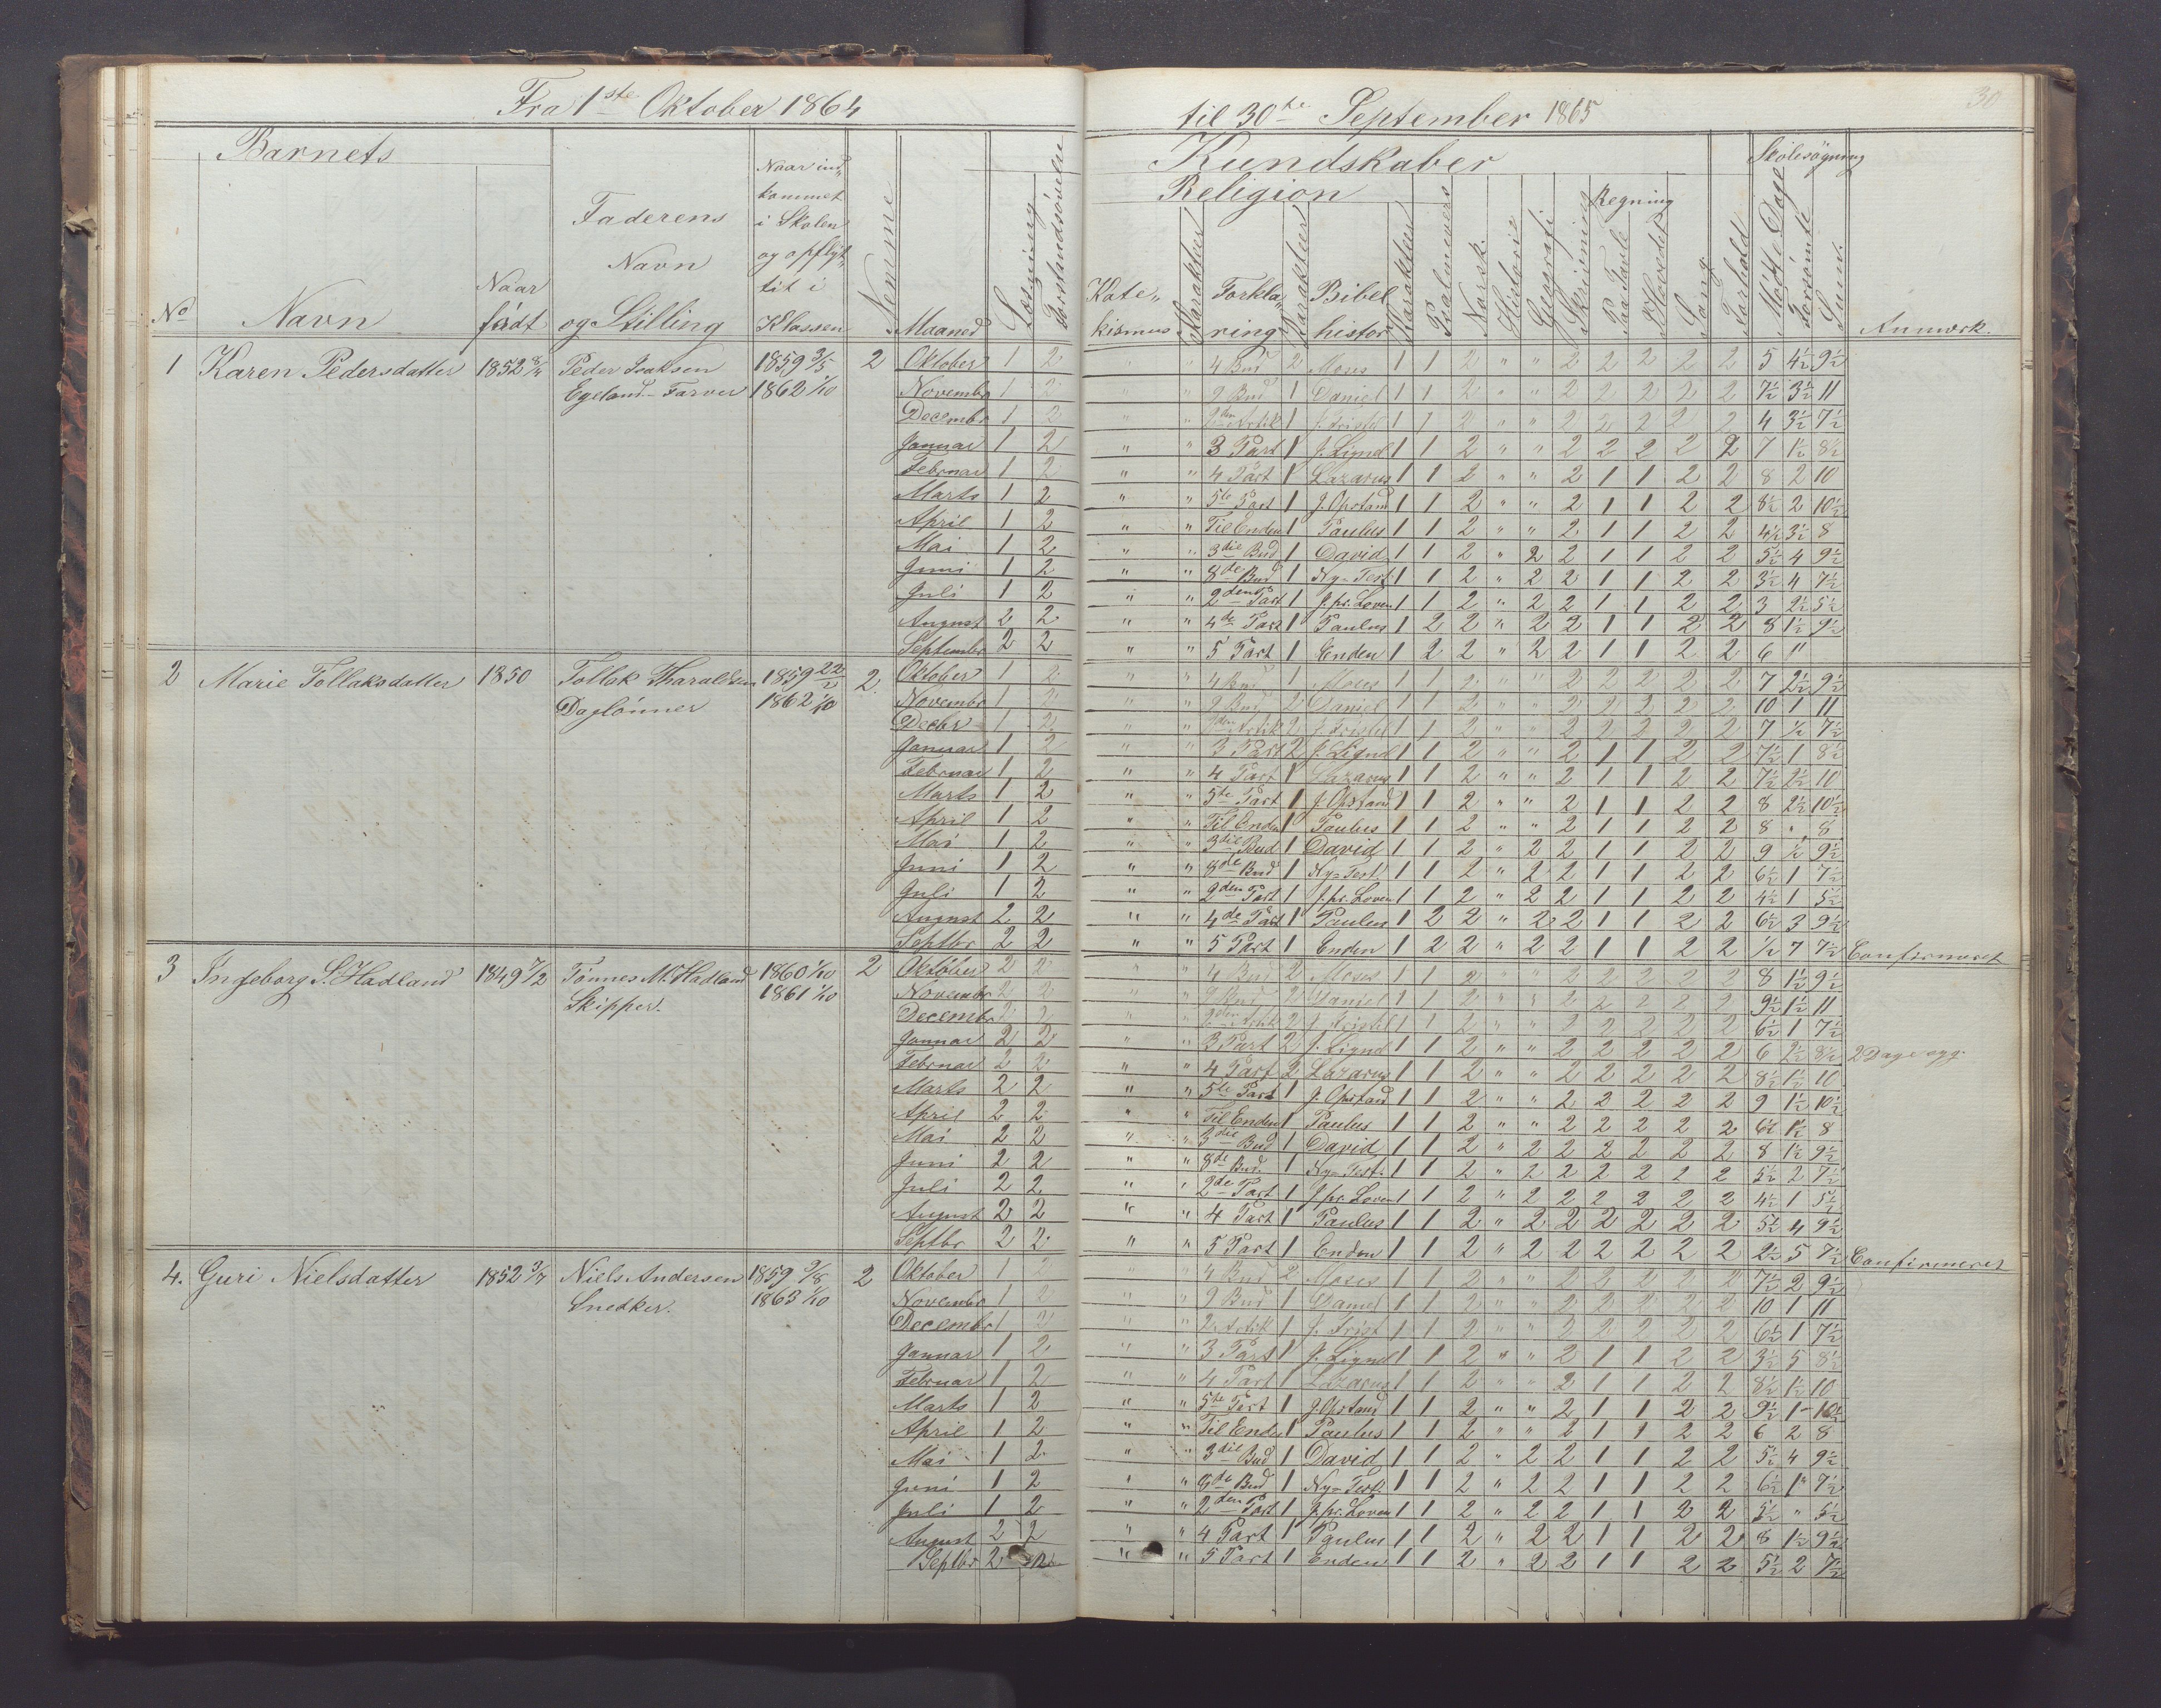 Fra 1ste Oktober 1864
til 30te September 1865
30
Barnets
Kundskaber
Skolesøgning
Religion
Regning
No Navn Naar født Faderens Navn og Stilling Naar ind„ kommet i Skolen og opflyt„ tit i Klassen Nemme Maaned Læsning Forstandsøvelse
Kate„ kismus Karakter Forkla„ ring Karakter Bibel histor Karakter Psalmevers Norsk. Historie Geografi Skrivning Paa Tavle I Hovedet Sang Forhold Mødte Dage Forsømte Sum. Anmærk.
1 Karen Pedersdatter 1852 Peder Isaksen 1859 3/5 2 Oktober 1 2 " 4 Bud 2 Moses 1 1 2 " " 2 2 2 2 2 5 4½ 9½
Egeland - Farver 1862 1/10 Novembr 1 2 " " 9 Bud 1 Daniel 1 1 2 " " 2 2 2 2 2 7½ 3½ 11
Decembr 1 2 " " 2den Artik 1 J. Fristel 1 1 2 " " 2 2 2 2 2 4 3½ 7½
Januar 1 2 " " 3 Part 1 J. Lignel 1 1 2 " " 2 2 2 2 2 7 1½ 8½
Februar 1 2 " " 4 Part 1 Lazarus 1 1 2 " " 2 1 1 2 2 8 2 10
Marts 1 2 " " 5te Part 1 J. Opstand 1 1 2 " " 2 1 1 2 2 8½ 2 10½
April 1 2 " " Til Enden 1 Paulus 1 1 2 " " 2 1 1 2 2 4½ 3½ 8
Mai 1 2 " " 3die Bud 1 David 1 1 2 " 2 2 1 1 2 2 5½ 4 9½
Juni 1 2 " " 8de Bud 1 Ny-Test. 1 1 2 " 2 2 1 1 2 2 3½ 4 7½
Juli 1 2 " " 2den Part 1 J. pr. Loven 1 1 2 " 2 2 1 1 2 2 3 2½ 5½
August 2 2 " " 4de Part 1 Paulus 1 2 2 " 2 2 1 1 2 2 8 1½ 9½
Septembr 2 2 " " 5 Part 1 Enden 1 2 2 " 2 2 1 1 2 2 6 "
2 Marie Tollaksdatter 1850 Tollak Tharaldsen 1859 22/2 2 Oktober 1 2 " " 4 Bud 1 Moses 1 1 2 " " 2 2 2 2 2 7 2½ 9½
Daglønner 1862 1/10 Novembr 1 2 " " 9 Bud 2 Daniel 1 1 2 " " 2 2 2 2 2 10 1 11
Decbr 1 2 " " 2den Artik 2 J. Fristel 1 1 2 " " 2 2 2 2 2 7 ½ 7½
Januar 1 2 " " 3 Part 2 J. Lignel 1 1 2 " " 2 1 1 2 2 7½ 1 8½
Februar 1 2 " " 4 Part 1 Lazarus 1 1 2 " " 2 1 1 2 2 7½ 2½ 10
Marts 1 2 " " 5te Part 1 J. Opstand 1 1 2 " " 2 1 1 2 2 8 2½ 10½
April 1 2 " " Til Enden 1 Paulus 1 1 2 " " 2 1 1 2 2 8 " 8
Mai 1 2 " " 3die Bud 1 David 1 1 2 " 2 2 1 1 2 2 9 ½ 9½
Juni 1 2 " " 8de Bud 1 Ny-Test. 1 1 2 " 2 2 1 1 2 2 6½ 1 7½
Juli 1 2 " " 2den Part 1 J. pr. Loven 1 1 2 " 2 2 1 1 2 2 4½ 1 5½
August 2 2 " " 4de Part 1 Paulus 1 2 2 " 2 2 1 1 2 2 6½ 3 9½
Septbr 2 2 " " 5 Part 1 Enden 1 2 2 " 2 2 1 1 2 2 ½ 7 7½ Confirmeret
3 Ingeborg S. Hadland 1849 7/2 Tønnes M. Hadland 1860 1/10 2 Oktober 2 2 " " 4 Bud 2 Moses 1 1 2 " " 2 2 2 2 2 8 1½ 9½
Skipper. 1861 1/10 Novembr 2 2 " " 9 Bud 2 Daniel 1 1 2 " " 2 2 2 2 2 9½ 1½ 11
Decembr 2 2 " " 2den Artik 2 J. Fristel 1 1 2 " " 2 2 2 2 2 6½ 1 7½
Januar 2 2 " " 3 Part 2 J. Lignel 1 1 2 " " 2 2 2 2 2 6 2½ 8½ 2 Dage syg.
Februar 2 2 " " 4 Part 2 Lazarus 1 1 2 " " 2 2 2 2 2 8½ 1½ 10
Marts 2 2 " " 5te Part 1 J. Opstand 1 1 2 " " 2 2 2 2 2 9 1½ 10½
April 2 2 " " Til Enden 1 Paulus 1 1 2 " " 2 2 2 2 2 6½ 1½ 8
Mai 2 2 " " 3die Bud 1 David 1 1 2 " 2 2 2 2 2 2 8 1½ 9½
Juni 2 2 " " 8de Bud. 1 Ny-Test. 1 1 2 " 2 2 2 2 2 2 5½ 2 7½
Juli 2 2 " " 2de Part 1 J. pr. Loven 1 1 2 " 2 2 2 2 2 2 4½ 1 5½
August 2 2 " " 4 Part 1 Paulus 1 1 2 " 2 2 2 2 2 2 5½ 4 9½
Septbr 2 2 " " 5 Part 1 Enden 1 1 2 " 2 2 2 2 2 2 2½ 5 7½ Confirmeret
4. Guri Nielsdatter 1852 3/7 Niels Andersen 1859 9/8 2 Oktober 1 2 " " 4 Bud 2 Moses 1 1 2 " " 2 2 2 2 2 7½ 2 9½
Snedker. 1863 1/10 Novembr 1 2 " " 9 Bud 1 Daniel 1 1 2 " " 2 2 2 2 2 10 1 11
Decembr 1 2 " " 2. Artik 1 J. Frist 1 1 2 " " 2 2 2 2 2 6½ 1 7½
Januar 1 2 " " 3 Part 1 J. Lignel 1 1 2 " " 2 1 1 2 2 3½ 5 8½
Februar 1 2 " " 4 Part 1 Lazarus 1 1 2 " " 2 1 1 2 2 8½ 1½ 10
Marts 1 2 " " 5te Part 1 J. Opstand 1 1 2 " " 2 1 1 2 2 9½ 1 - 10½
April 1 2 " " Til Ende 1 Paulus 1 1 2 " " 2 1 1 2 2 6 2 8
Mai 1 2 " " 3die Bud 1 David 1 1 2 " 2 2 1 1 2 2 5½ 4 9½
Juni 1 2 " " 8de Bud 1 Ny-Test. 1 1 2 " 2 2 1 1 2 2 6½ 1 " 7½
Juli 1 2 " " 2den Part 1 J. pr. Loven 1 1 2 " 2 2 1 1 2 2 5½ " 5½
August 2 2 " " 4 Part 1 Paulus 1 1 2 " 2 2 1 1 2 2 8 1½ 9½
Septbr 2 2 " " 5 Part 1 Enden 1 1 2 " 2 2 1 1 2 2 5½ 2 7½